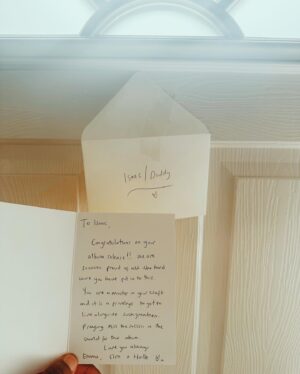 Isaac / Daddy
To Isaac,
Congratulations on your
album release!! We are
so proud of all the hard
work you have put in to this.
You are a master in your craft
and it is a privilege to get to
live alongside such greatness.
Praying all the success in the
world for this album.
Love you always
Emma,